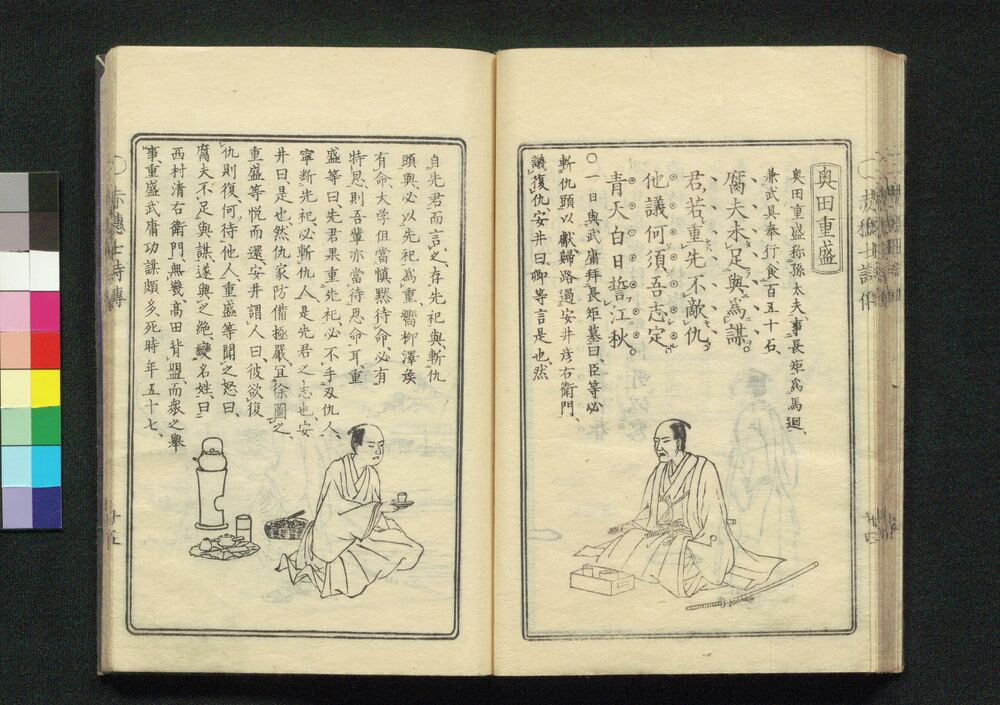 奥田重盛
奥田重盛称孫太夫、事長矩為馬廻、
兼武具奉行、食百五十石、
腐夫未足與為謀。
君若重先不敵仇。
他議何須吾志定。
青天白日誓江秋。
〇一日與武庸拜長矩墓曰、臣等必
斬仇頭以献、歸路過安井彦右衛門、
議復仇、安井曰、卿等言是也、然
自先君而言之、存先祀與斬仇
頭與、必以先祀為重、嚮柳澤侯
有命、大学但當慎黙待命、必有
特恩、則吾輩亦當待恩命耳、重
盛等曰、先君果重先祀、必不手刃仇人、
寧断先祀、必斬仇人、是先君之志也、安
井曰是也、然仇家防備極嚴、宜徐圖之、
重盛等悦而還、安井謂人曰、彼欲復
仇則復、何待他人、重盛等聞之怒曰、
腐夫不足與謀、遂與之絶、變名姓、曰
西村清右衛門、無幾、高田背盟、而衆之舉
事、重盛武庸功謀頗多、死時年五十七、
赤穗士詩傳
廿五
廿四